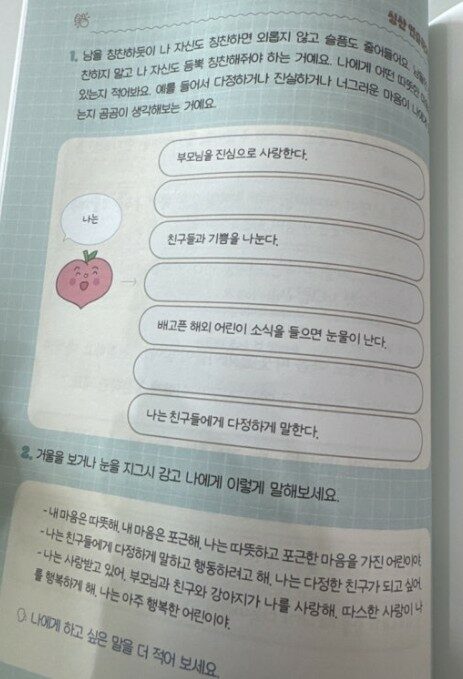 1. 남을 칭찬하듯이 나 자신도 칭찬하면 외롭지 않고 슬픔도 줄어들어요.
찬하지 말고 나 자신도 듬뿍 칭찬해줘야 하는 거예요. 나에게 어떤 따뜻한
있는지 적어봐요. 예를 들어서 다정하거나 진실하거나 너그러운 마음이
는지 곰곰이 생각해보는 거예요.
부모님을 진심으로 사랑한다.
나는
친구들과 기쁨을 나눈다.
배고픈 해외 어린이 소식을 들으면 눈물이 난다.
나는 친구들에게 다정하게 말한다.
2. 거울을 보거나 눈을 지그시 감고 나에게 이렇게 말해보세요.
- 내 마음은 따뜻해. 내 마음은 포근해. 나는 따뜻하고 포근한 마음을 가진 어린이야.
- 나는 친구들에게 다정하게 말하고 행동하려고 해. 나는 다정한 친구가 되고 싶어.
- 나는 사랑받고 있어. 부모님과 친구와 강아지가 나를 사랑해. 따스한 사랑이 나
를 행복하게 해. 나는 아주 행복한 어린이야.
나에게 하고 싶은 말을 더 적어 보세요.